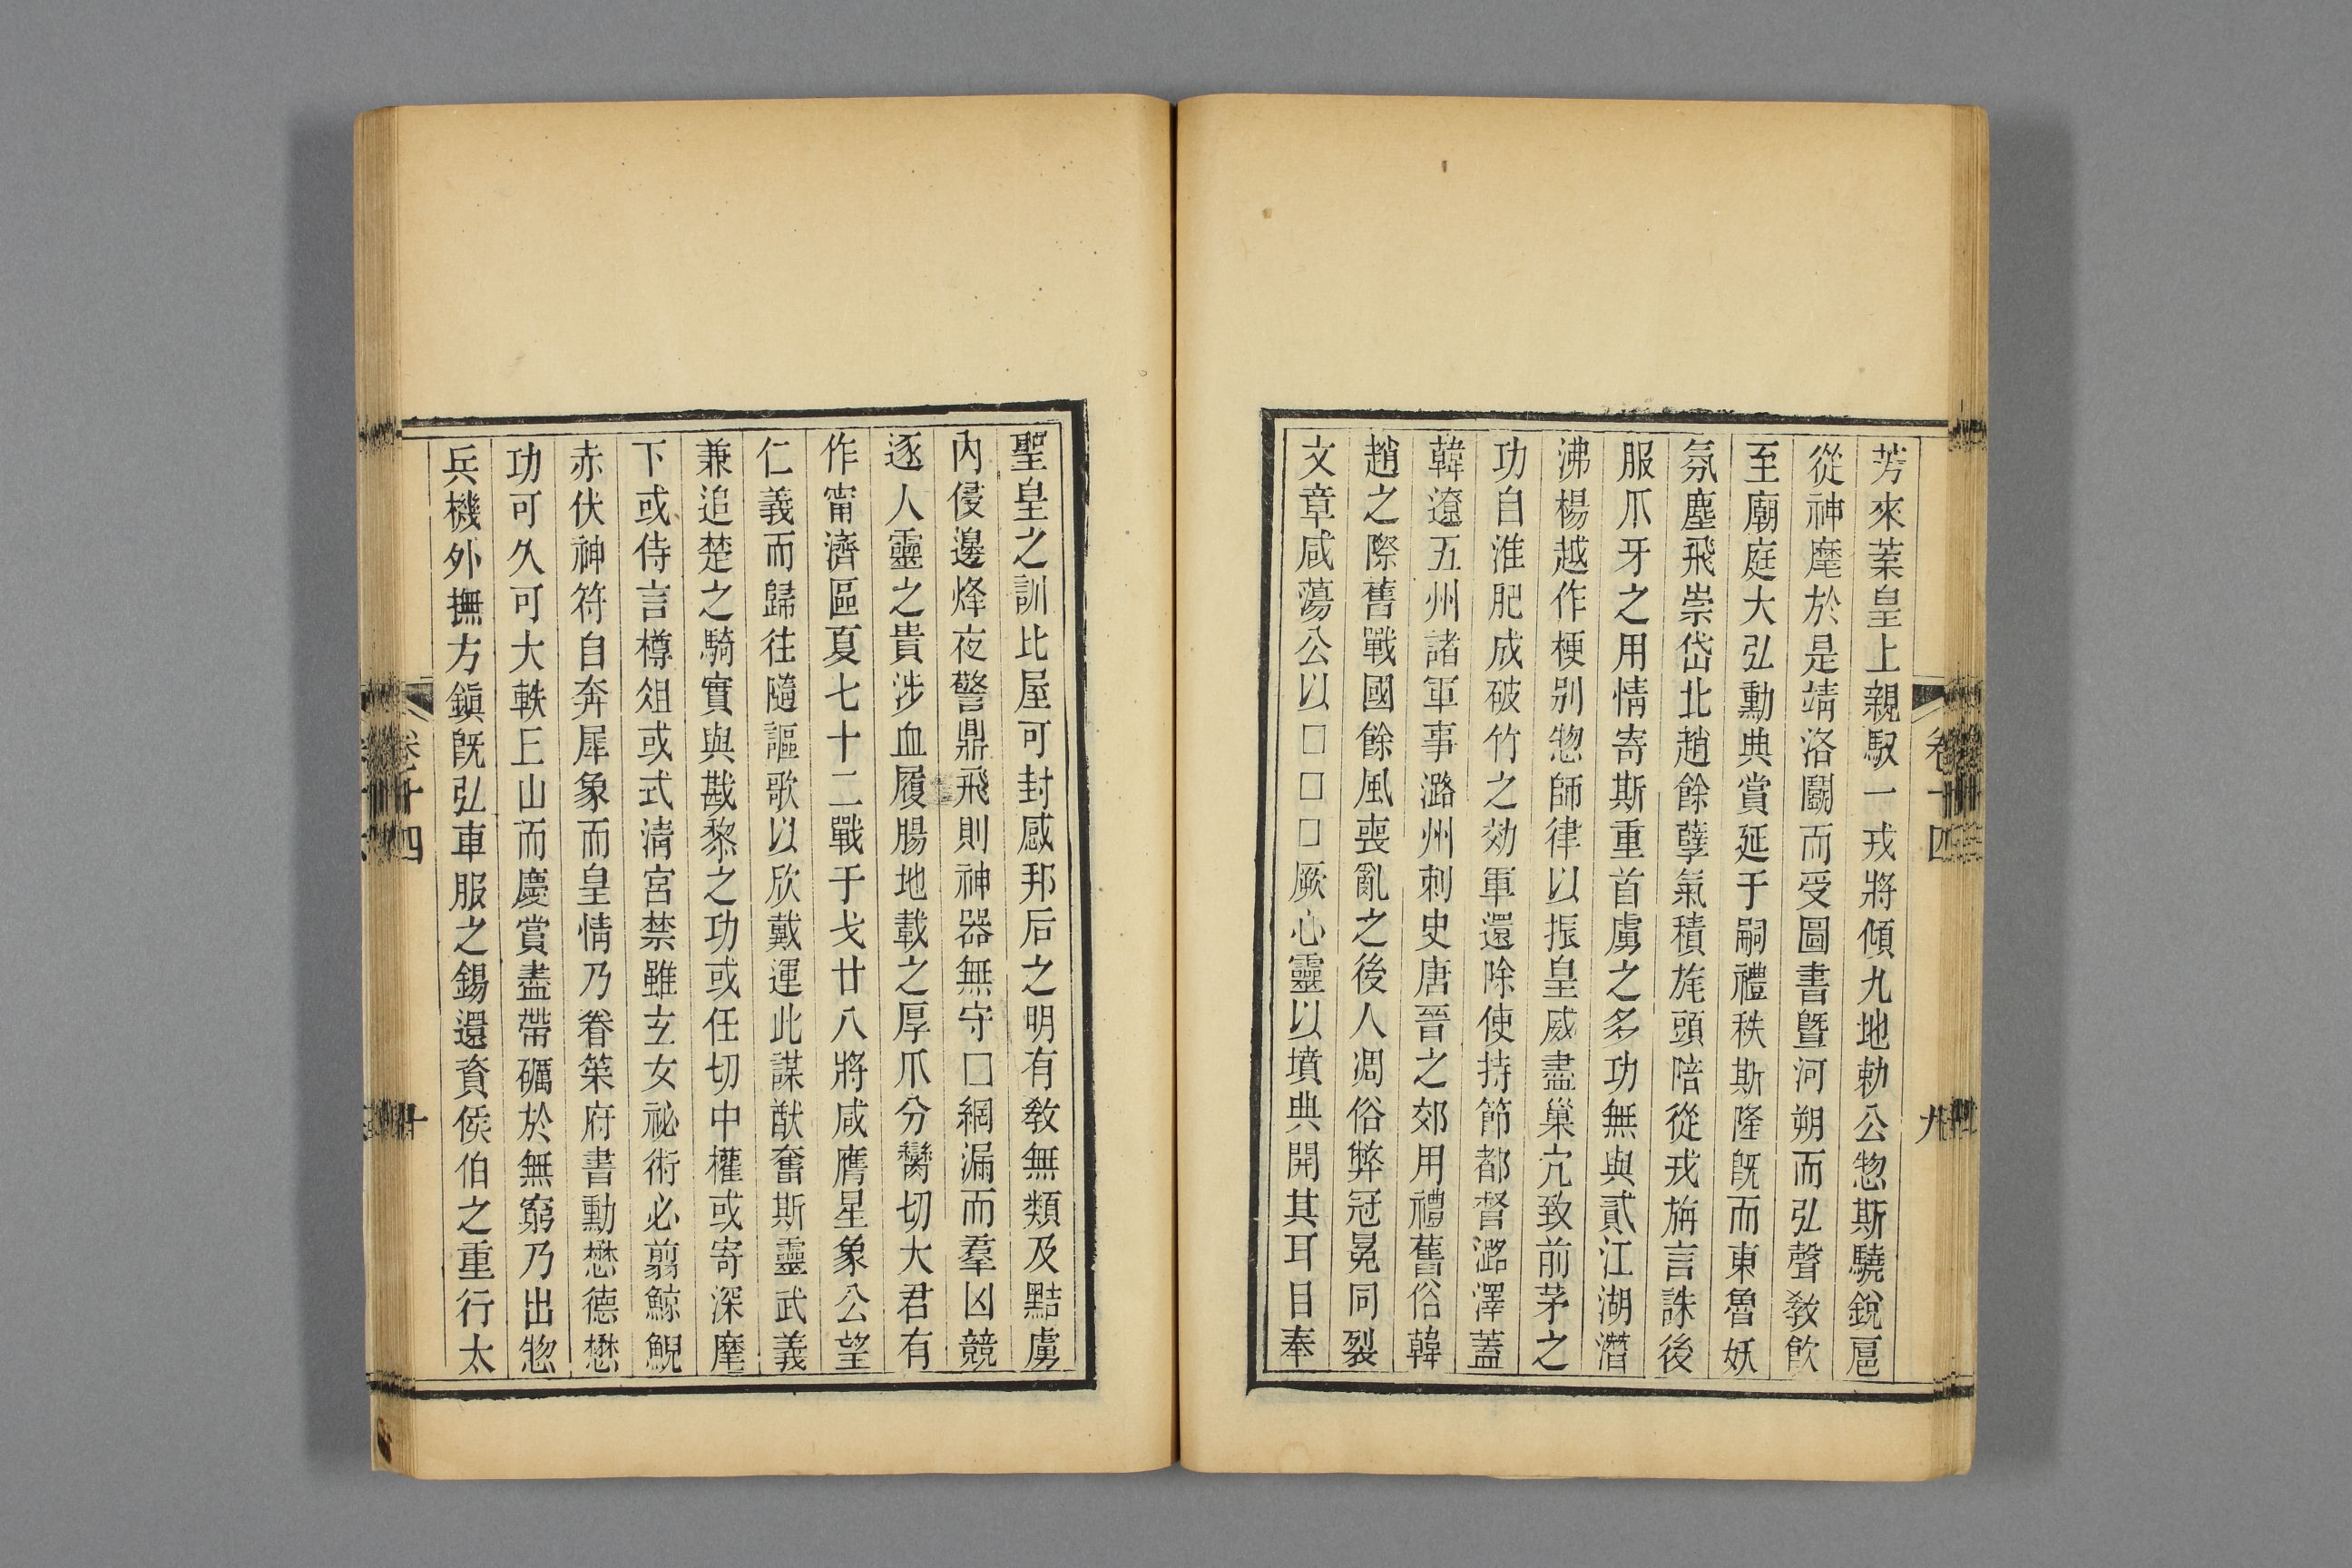 芳來菒皇上親馭一戎將傾九地勅公惣斯驍銳扈
從神麾於是靖洛鬭而受圖書曁河朔而弘聲敎飮
至廟庭大弘勳典賞延于嗣禮秩斯隆旣而東魯妖
氛塵飛崇岱北趙餘孽氣積旄頭陪從戎旃言誅後
服爪牙之用情寄斯重首虜之多功無與貳江湖潛
沸楊越作梗别惣師律以振皇威盡巢宂致前茅之
功自淮肥成破竹之効軍還除使持節都督潞澤蓋
韓遼五州諸軍事潞州刺史唐晉之郊用禮舊俗韓
趙之際舊戰國餘風喪亂之後人凋俗弊冠冕同裂
文章咸蕩公以□□□厥心靈以墳典開其耳目奉
卷十四
九
聖皇之訓比屋可封感邦后之明有敎無類及黠虜
內侵邊烽夜警鼎飛則神器無守□綱漏而羣凶競
逐人靈之貴涉血履腸地載之厚爪分臠切大君有
作甯濟區夏七十二戰于戈廿八將咸膺星象公望
仁義而歸往隨謳歌以欣戴運此謀猷奮斯靈武義
兼追楚之騎實與戡黎之功或任切中權或寄深麾
下或侍言樽俎或式淸宮禁雖玄女祕術必翦鯨鯢
赤伏神符自奔犀象而皇情乃眷策府書勳懋德懋
功可久可大軼𠙴山而慶賞盡帶礪於無窮乃出惣
兵機外撫方鎭旣弘車服之錫還資侯伯之重行太
卷十四
十